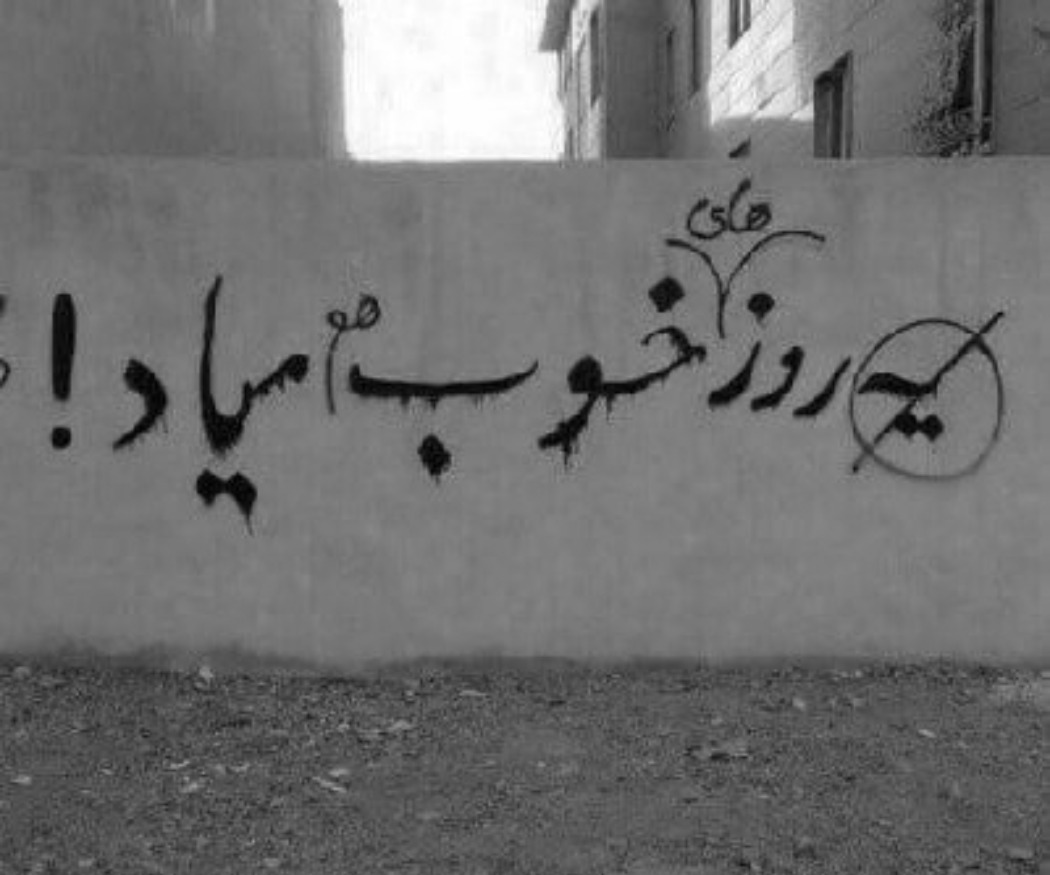 یه روز های خوب هم میاد!